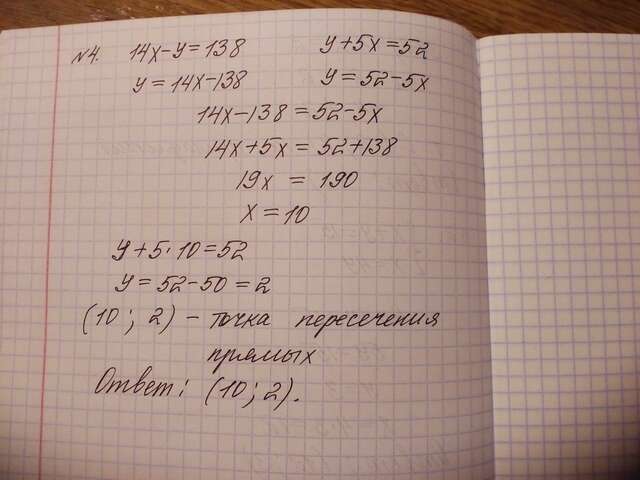 №4. 14x-y=138 y+5x=52
y=14x-138 y=52-5x
14x-138=52-5x
14x+5x=52+138
19x = 190
x=10
y+5·10=52
y=52-50=2
(10; 2) - точка пересечения
прямых
Ответ: (10; 2).